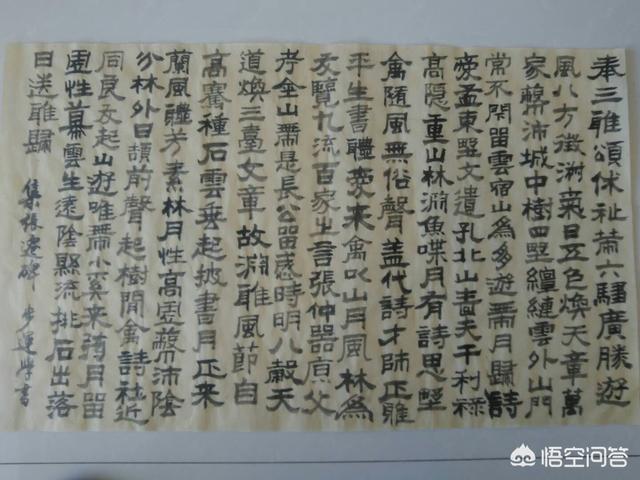 奉三雅頌休祉六騷廣勝遊
風八方徵氣日五色煥天章萬
家沛城中樹四野雲外山門
常不閉留雲宿山為多遊帶月歸詩
豪孟東野文遺孔北山千利祿
高隱重山林淵魚喋月有詩思野
禽隨風無俗聲蓋代詩才師正雅
平生書體愛來禽以山月風林為
友覽九流百家言張仲器父
孝山帶是長公留時明八天
道煥三臺文章故淵雅風節自
高騫種石雲垂起披書月正來
蘭風體芳素林月性高沛陰
分林外日前聲起樹間禽詩社近
同庚友起山遊唯帶小奚來荷月留
性慕雲生遠陰縣流排石出落
日送雅歸
集張遷碑 步運學書
悟空问答